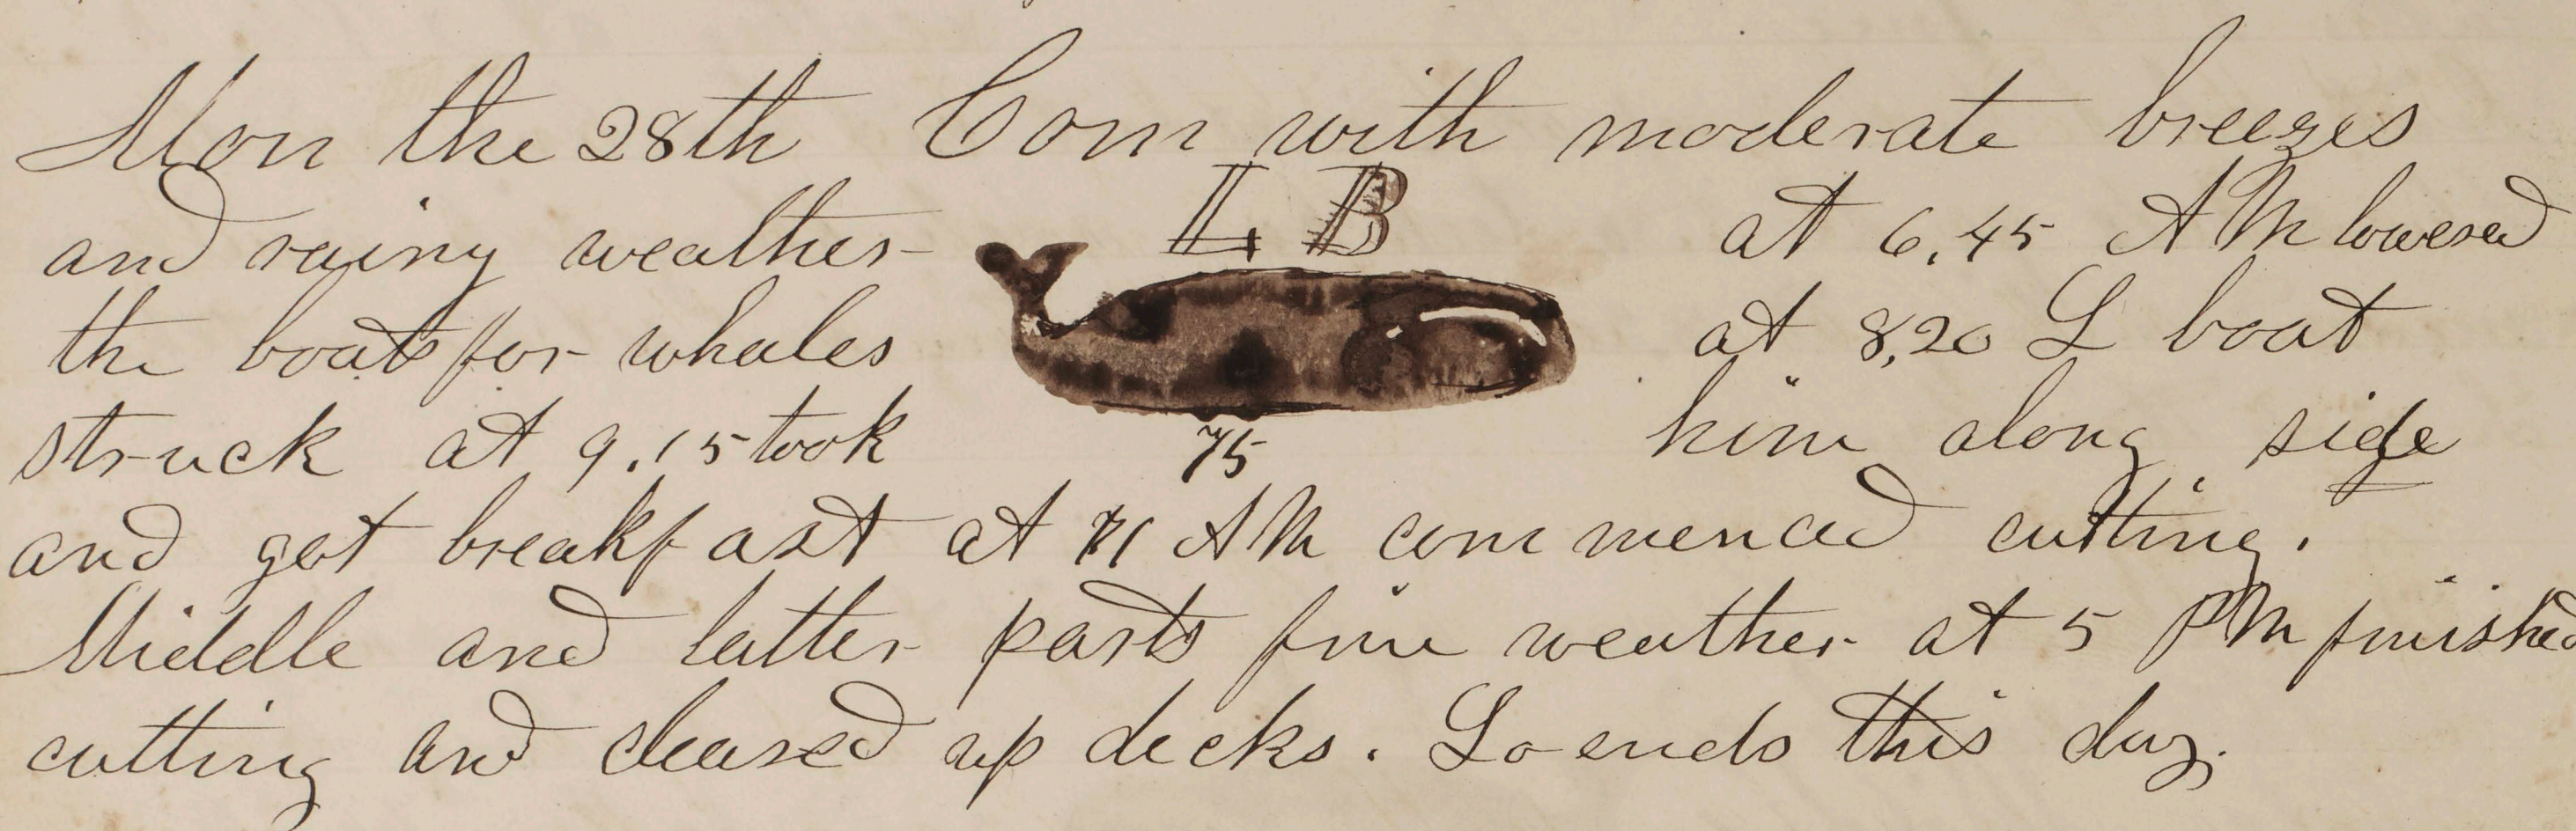 Mon the 28th Com with moderate breezes
L B
and rainy weather at 6.45 AM lowered
the boats for whales at 8,20 L boat
struck at 9.15 took him along side
75
and got breakfast at 11 AM commenced cutting.
Middle and latter parts fine weather at 5 PM finished
cutting and cleared up decks. So ends this day.